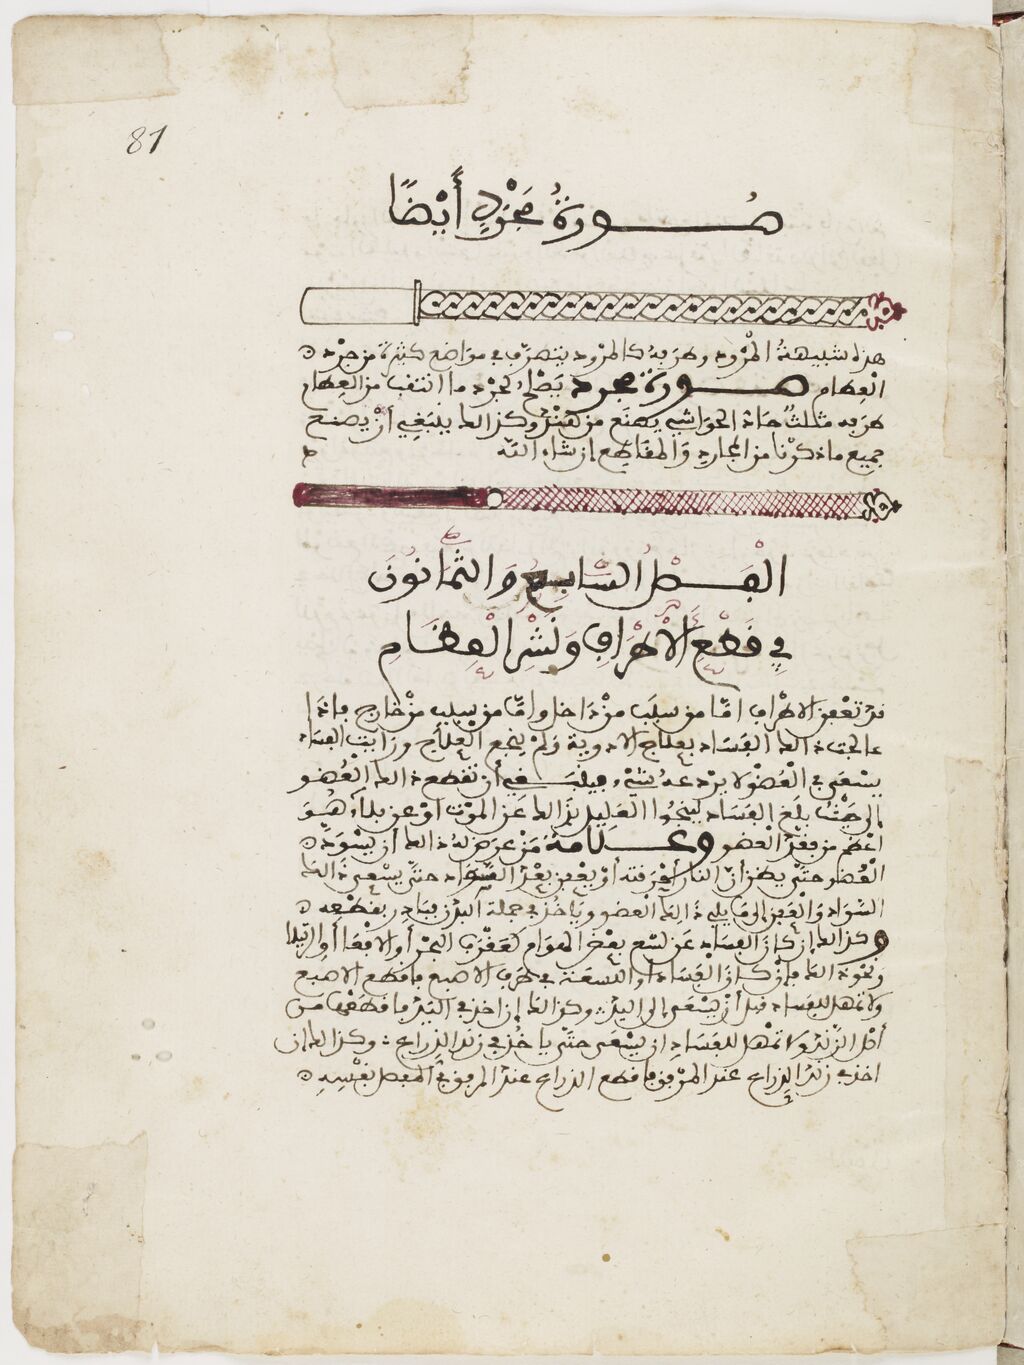 81
صُورَةُ مِجْرَدٍ أَيْضًا
هذه شبيهةُ المرْوَد وطرفه كالمرْوَد يتصرّف في مواضع كثيرة من جرْد
العظام صورة مجرد يَصْلح لجرْد ما انتقب من العظام
طرفه مثلثٌ حادّ الحواشي يصنع من هند وكذالك ينبَغِي أنْ يصنع
جميع ما ذكرْنا من المجارد وَالمقاطع إن شاء اللّه
الفَصْلُ السّابِعُ وَالثّمانُونَ
فِي قَطْعِ الأطْرَافِ وَنَشْرِ الْعِظَامِ
قدْ تعْفن الاطْراف امّا من سبَب منْ دَاخل وامّا من سبب منْ خارج فإذا
عالجت ذالك الفسَاد بعلاج الادوية وَلمْ ينجع الْعلاج ورَايت الفسَاد
يسْعَى في الْعُضْو لا يرْدعه شيْء فينبغي أن تقطع ذالك الْعُضو
إلى حَيْثُ بلَغ الفسَاد لينجُوا العَليل بذَالك عَن الموْت أوْ عن بلاء هُوَ
اعْظم من فقْد الْعضو وعلامةُ مَنْ عرَض لهُ ذالك أن يسْوَدّ
الْعُضو حتّى يظن أنّ النار أحْرَقته أوْ يعْفن بعْد السّواد حتّى يسْعى ذالك
السّوَاد وَالْعَفن إلى مَا يلي ذالك الْعضو وَيَاخُذ في جملة الْبدن فبَادِر بقطْعِه
وكذالك إن كان الفسَاد عَن لسْع بعْض الهوَام كعَقْرَب البحْر أو الافْعَا أو الرّتيلا
ونحْو ذالك فإنْ كانَ الْفسَاد أو اللسْعَة في طرَف الاصبع فاقطع الاصبع
ولا تمْهل للفسَاد قبل أنْ يسْعَى إلى اليد وكذالك إن اخذ في اليَد فاقطعْها من
أصْل الزّنْد ولا تمْهل للفسَادِ ان يسْعَى حتّى ياخُذ في زند الذراع وكذالك إن
اخذ في زنْد الذراع عند المرْفق فاقطع الذراع عند المرفق في المفصل نفْسِهِ